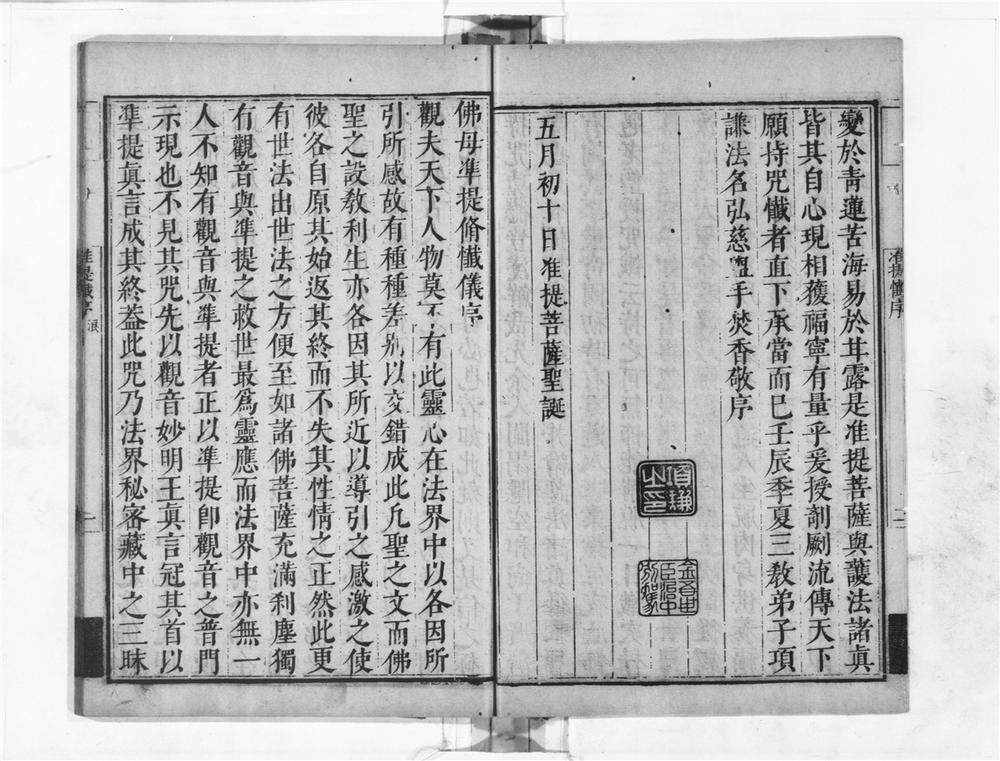 變於靑蓮苦海易於甘露是准提菩薩與護法諸眞
皆其自心現相獲福寧有量乎爰授剞劂流傳天下
願持咒懺者直下承當而已壬辰季夏三敎弟子項
謙法名弘慈盥手焚香敬序
五月初十日准提菩薩聖誕
項謙之印
准提懺序
佛母準提脩懺儀序
觀夫天下人物莫不有此靈心在法界中以各因所
引所感故有種種差别以交錯成此凡聖之文而佛
聖之設敎利生亦各因其所近以導引之感激之使
彼各自原其始返其終而不失其性情之正然此更
有世法出世法之方便至如諸佛菩薩充滿刹塵獨
有觀音與準提之救世最爲靈應而法界中亦無一
人不知有觀音與準提者正以準提卽觀音之普門
示現也不見其咒先以觀音妙明王眞言冠其首以
準提眞言成其終葢此咒乃法界秘密藏中之三昧
准提懺序